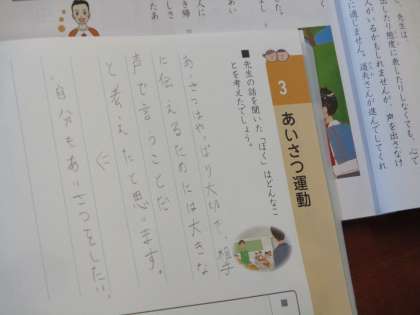 出したり態度に表したりしなくても、心で
人がいるかもしれませんが、声を出さなけ
に通じません。道夫さんが進んでしてくれ
先生は、
人に
あい
き帰
しさ
たあ
3 あいさつ運動
■先生の話を聞いた「ぼく」はどんなこ
とを考えたでしょう。
あいさつはやっぱり大切で、相手
に伝えるためには大きな
声で言うことだ
と考えたと思います。
自分もあいさつをしたい。